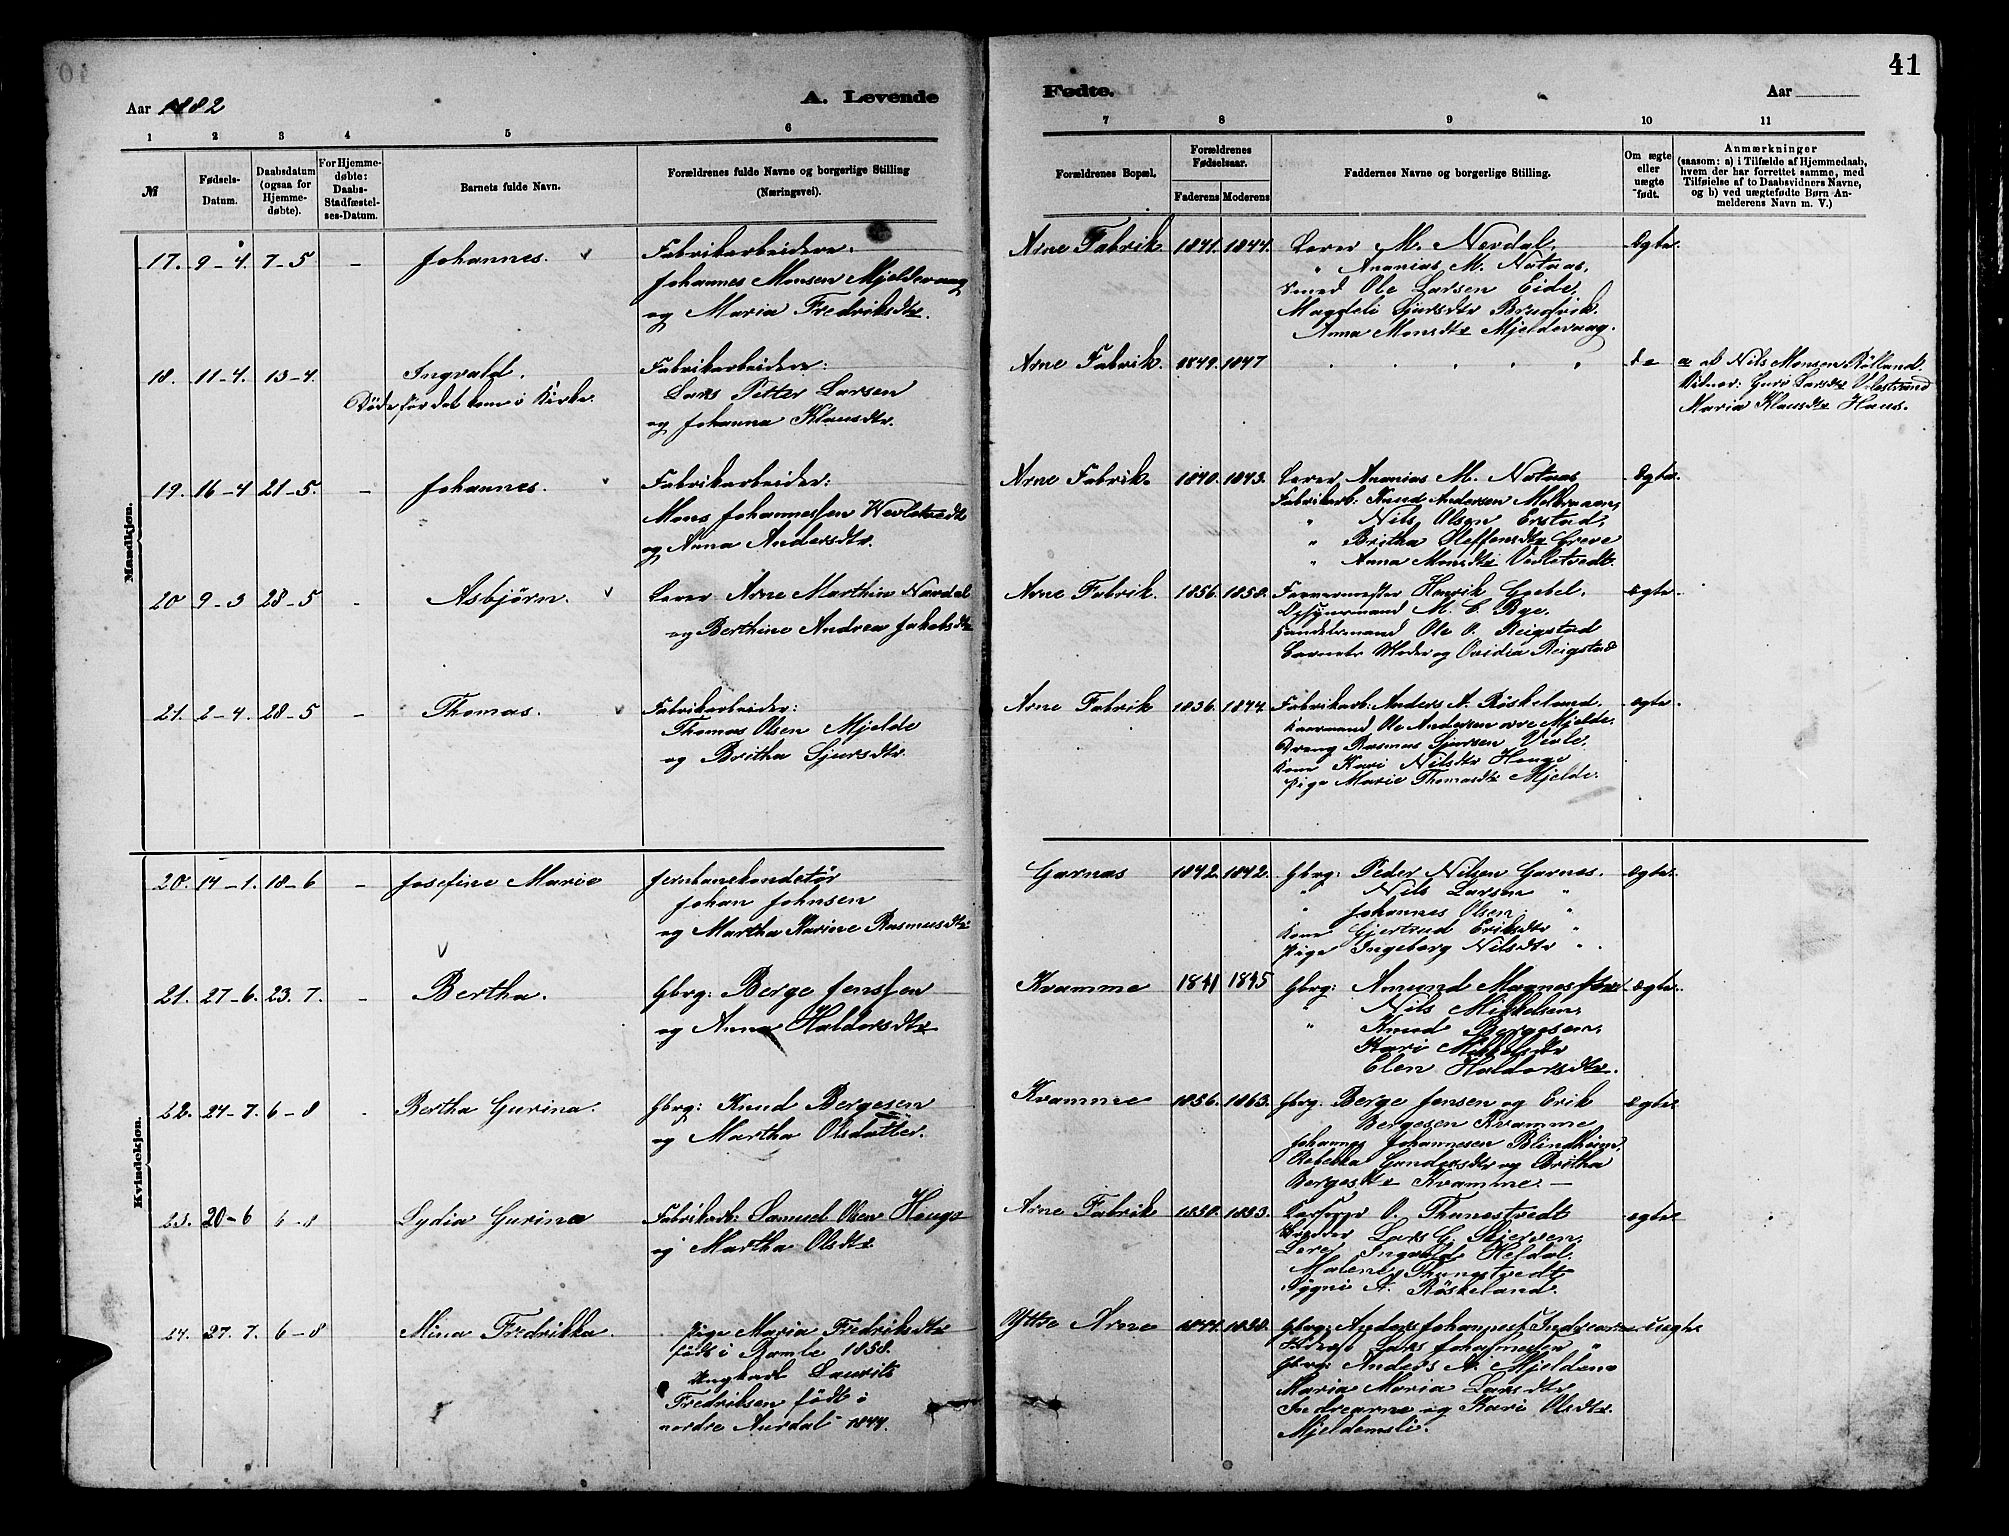 41
Aar 1882
A. Levende
Fødte.
Aar
1 2 3 4 5 6 7 8 9 10 11
№
Fødsels-
Datum.
Daabsdatum
(ogsaa for
Hjemme-
døbte).
For Hjemme-
døbte:
Daabs-
Stadfæstel-
ses-Datum.
Barnets fulde Navn.
Forældrenes fulde Navne og borgerlige Stilling
(Næringsvei).
Forældrenes Bopæl.
Forældrenes
Fødselsaar.
Faderens Moderens
Faddernes Navne og borgerlige Stilling.
Om ægte
eller
uægte
født.
Anmærkninger
(saasom: a) i Tilfælde af Hjemmedaab,
hvem der har forrettet samme, med
Tilføielse af to Daabsvidners Navne,
og b) ved uægtefødte Børn An-
melderens Navn m. V.)
Mandkjøn.
17. 9-4. 7-5 - Johannes.
Fabrikarbeider:
Johannes Monsen Mjeldevaag
og Maria Fredriksdtr.
Arne Fabrik 1841. 1844.
Lærer M. Nevdal,
" Ananias M. Nataas,
Smed Ole Larsen Eide,
Magdeli Sjursdtr Brudvik.
Anna Monsdtr Mjeldevaag.
Ægte.
18. 11-4. 13-4. Ingvald.
Døde før det kom i Kirke.
Fabrikarbeider:
Lars Petter Larsen
og Johanna Klausdtr.
Arne Fabrik. 1849. 1847
do
a. af Nils Monsen Rölland.
Vidner: Guri Larsdtr
Maria Klausdtr Haus.
19. 16-4 21-5. - Johannes.
Fabrikarbeider:
Mons Johannessen Vevletvedt
og Anna Andersdtr.
Arne Fabrik. 1840. 1843.
Lærer Ananias M. Nataas
Fabrikarb: Knud Andersen
" Nils Olsen Erstad,
" Britha Steffensdtr Greve
" Anna Monsdtr Vevletvedt.
Ægte.
20 9-3 28-5 - Asbjørn.
Lærer Arne Marthin Navdal
og Berthine Andrea Jakobsdtr
Arne Fabrik. 1856. 1858.
Farvermester Henrik Goebel,
M. C. Bye.
Handelsmand Ole O. Reigstad
Barnets Moder og Ovidia Reigstad
Ægte.
21. 2-4. 28-5 - Thomas.
Fabrikarbeider:
Thomas Olsen Mjelde
og Britha Sjursdtr.
Arne Fabrik 1836. 1844.
Fabrikarb: Anders A. Röskeland.
Ole Andersen øvre Mjelde.
Dreng Rasmus Sjursen Vevle.
Kone Kari Nilsdtr Hauge
Pige Marie Thomasdtr Mjelde.
ægte.
Kvindekjøn.
20. 14-1. 18-6 - Josefine Marie
Jernbanekondetør
Johan Johnsen
og Martha Karine Rasmusdtr
Garnæs 1842. 1842.
Gbrg: Peder Nilsen Garnes.
" Nils Larsen "
" Johannes Olsen "
Kone Gjertrud Eriksdtr "
Pige Ingeborg Nilsdtr "
Ægte.
21. 27-6. 23.7. - Bertha.
Gbrg: Berge Jenssen
og Anna Haldorsdtr
Kvamme 1841 1845
Gbrg: Amund Magnessen
" Nils Mikkelsen,
" Knud Bergesen,
Kari Mikkelsdtr
Elen Haldorsdtr.
Ægte.
22. 24-7. 6-8 - Bertha Gurina.
Gbrg: Knud Bergesen
og Martha Olsdatter.
Kvamme 1856. 1863.
Gbrg. Berge Jensen og Erik
Bergesen Kvamme
Johannes Johannesen Blindheim,
Rebekka Gundersdtr og Britha
Bergesdtr Kvamme. -
Ægte.
23. 20-6 6-8 Lydia Gurina
Fabrikarb: Samuel Olsen Hauge
og Martha Olsdtr
Arne Fabrik 1850. 1853.
O. Thunestvedt
Lars G. Skjersen,
Lærer Ingvald Heldal.
Malene Thunestvedt
A. Röskeland.
ægte
24. 27.7. 6-8 Mina Fredrikka.
Pige Maria Fredriksdtr
født i Bamle 1858.
Ungkarl Laurits
Fredriksen født i
nordre Aurdal 1844.
Ytre Arne 1844. 1858.
Gbrg: Anders Johannes. Indrearne
Lars Johannesen "
Gbrg: Anders A. Mjeldem
Maria Maria Larsdtr
Indrearne og Kari Olsdtr
Mjeldemsli.
uægte